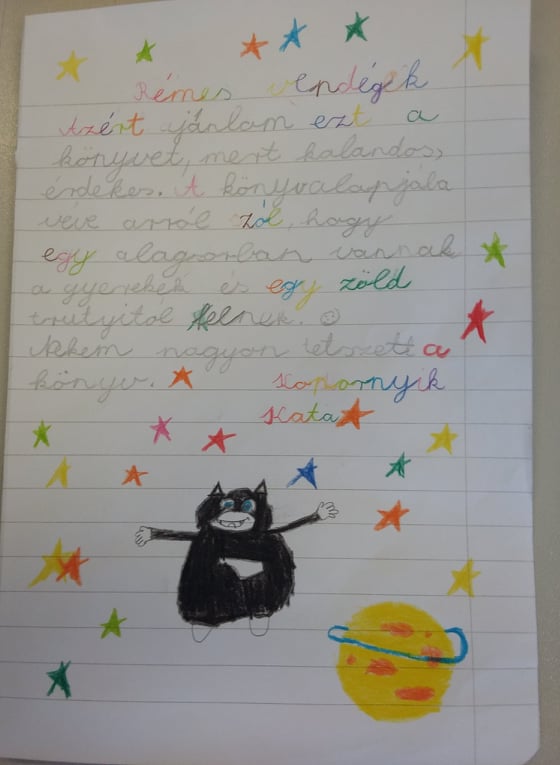 Rémes vendégek
Azért ajánlom ezt a
könyvet, mert kalandos,
érdekes. A könyvalapjála
véve arról szól, hogy
egy alagsorban vannak
a gyerekek és egy zöld
trutyitól félnek. ☺
Nekem nagyon tetszett a
könyv.
Kopornyik
Kata